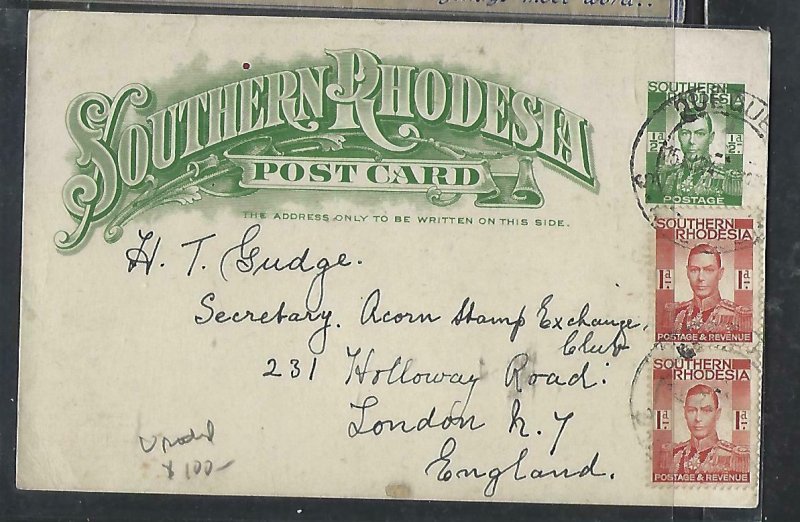 SOUTHERN RHODESIA
POST CARD
THE ADDRESS ONLY TO BE WRITTEN ON THIS SIDE.
H. T. Gudge.
Secretary. Acorn Stamp Exchange,
Club
231 Holloway Road.
London N. 7
England.
100-
SOUTHERN
RHODESIA
½d.
½d.
POSTAGE
QUE QUE
SOUTHERN
RHODESIA
1d.
1d.
POSTAGE & REVENUE
SOUTHERN
RHODESIA
1d.
1d.
POSTAGE & REVENUE